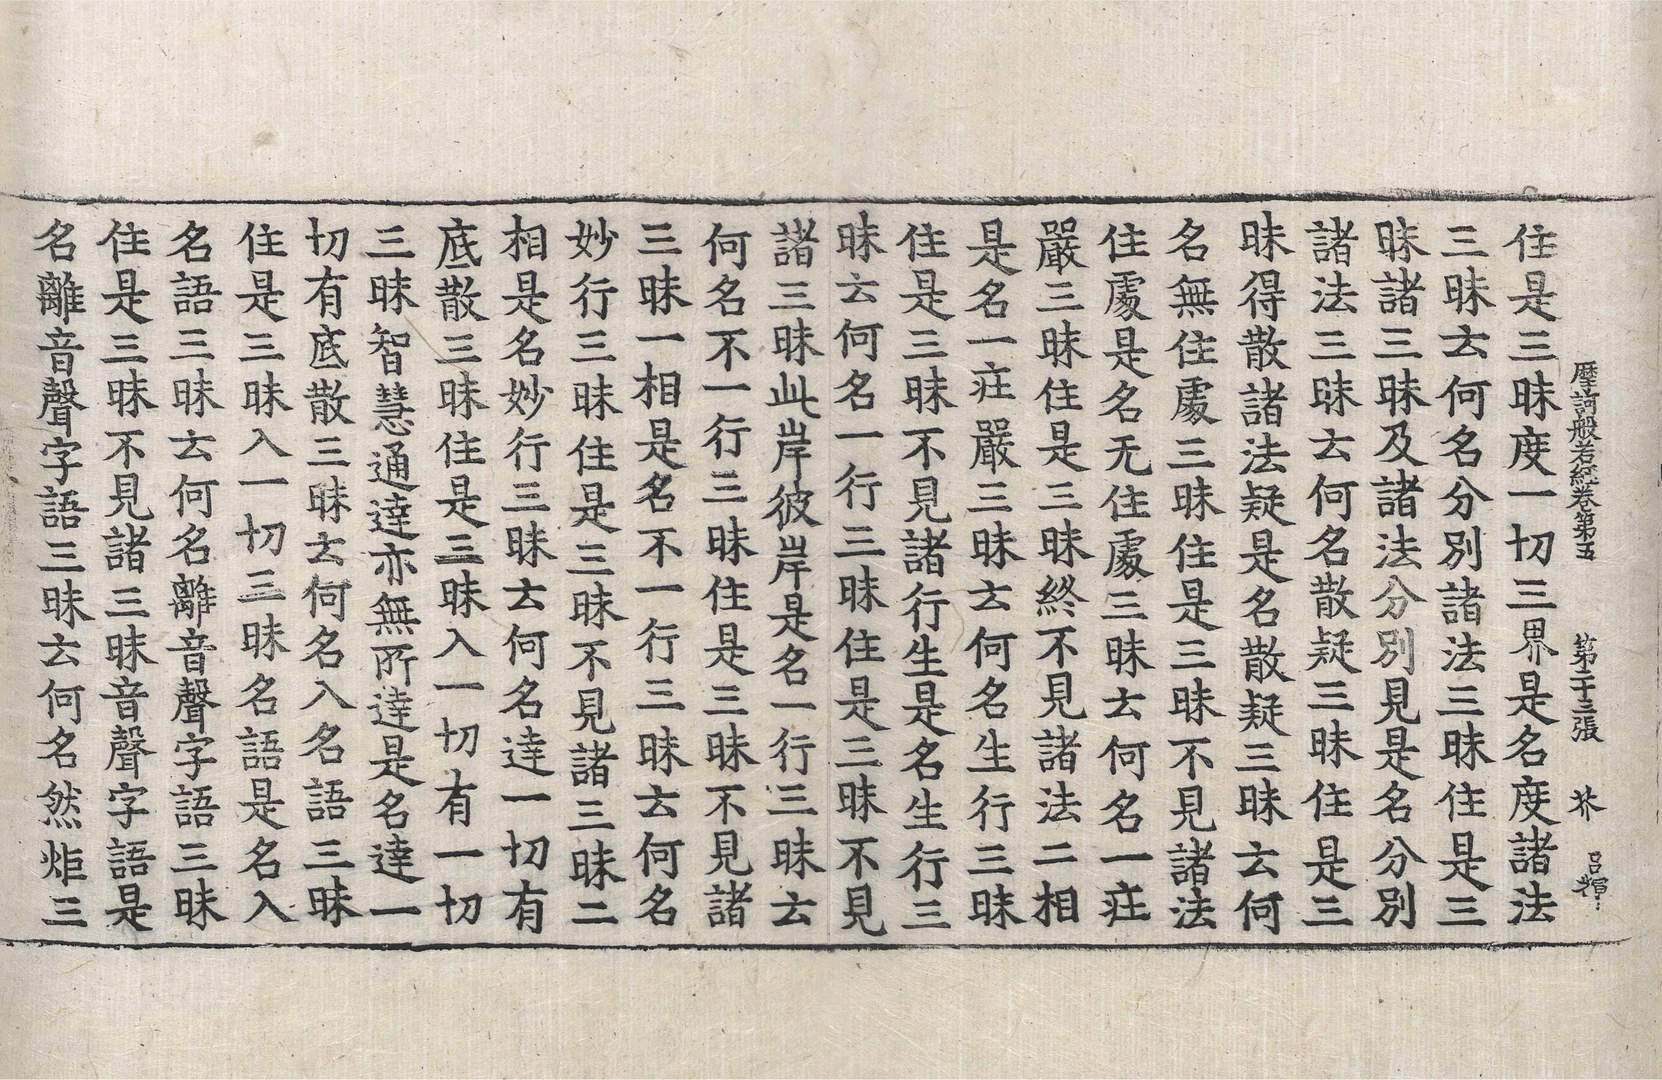 摩訶般若經卷第五　第二十三張　芥　呂揮
住是三昧度一切三界是名度諸法
三昧云何名分別諸法三昧住是三
昧諸三昧及諸法分別見是名分別
諸法三昧云何名散疑三昧住是三
昧得散諸法疑是名散疑三昧云何
名無住處三昧住是三昧不見諸法
住處是名无住處三昧云何名一莊
嚴三昧住是三昧終不見諸法二相
是名一莊嚴三昧云何名生行三昧
住是三昧不見諸行生是名生行三
昧云何名一行三昧住是三昧不見
諸三昧此岸彼岸是名一行三昧云
何名不一行三昧住是三昧不見諸
三昧一相是名不一行三昧云何名
妙行三昧住是三昧不見諸三昧二
相是名妙行三昧云何名達一切有
底散三昧住是三昧入一切有一切
三昧智慧通達亦無所達是名達一
切有底散三昧云何名入名語三昧
住是三昧入一切三昧名語是名入
名語三昧云何名離音聲字語三昧
住是三昧不見諸三昧音聲字語是
名離音聲字語三昧云何名然炬三